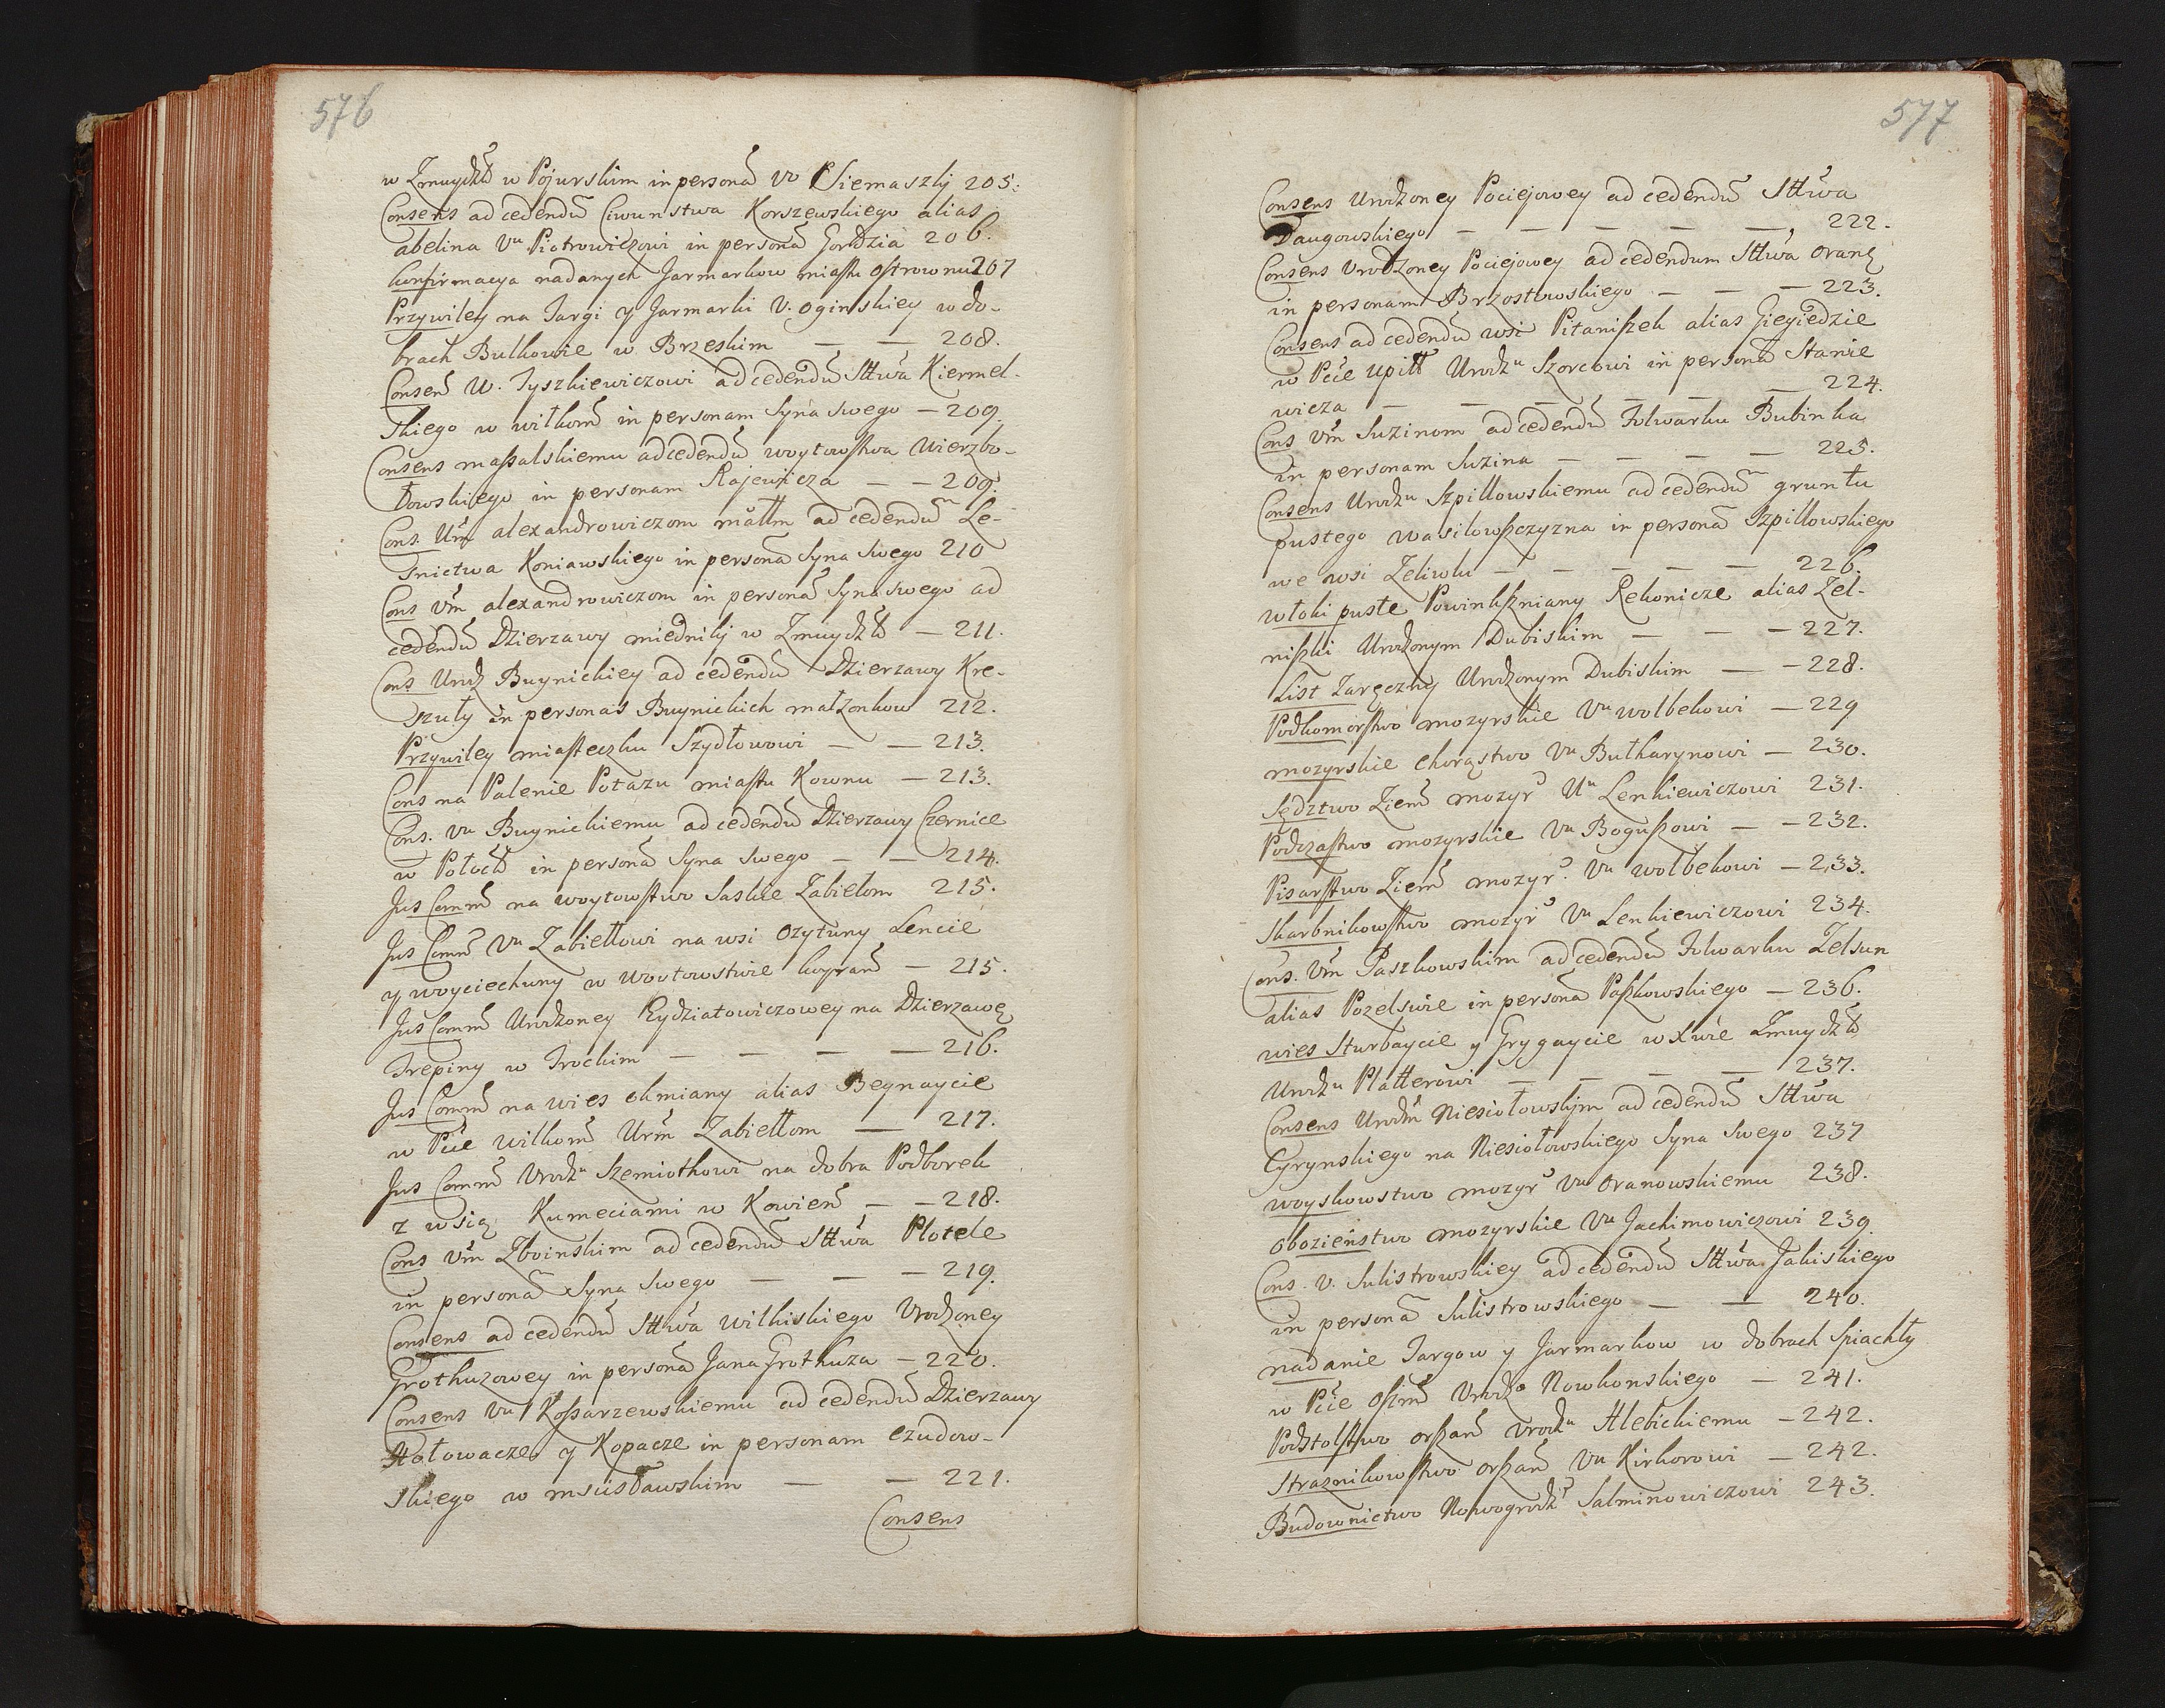 576
w Zmuydzᵗʰ w Pojurskim in personã Vᵒ Siemaszki 205.
Consens ad cedendũ Ciwunstwa Korszewskiego alias
abelina Vᵘ Piotrowiczowi in personã Gordzia 206.
Konfirmacya nadanych Jarmarkow miastu Ostrownu 207
Przywiley na Targi y Jarmarki V. Oginskiey w do-
brach Bulkowie w Brzeskim — — 208.
Consen̄ W. Tyszkiewiczowi ad cedendũ Sttwa Kiermel-
skiego w wilkom̄ in personam Syna Swego — 209.
Consens maßalskiemu ad cedendũ woytowstwa Wierzbo-
łowskiego in personam Rajewicza — — 209.
Cons. Um̄ alexandrowiczom małłm ad cedendũ Le-
snictwa Koniawskiego in personã Syna Swego 210
Cons Vm̄ alexandrowiczom in personã Syna Swego ad
cedendũ Dzierzawy miednikj w Zmuydzᵗʰ — 211.
Cons Urodz Buynickiey ad cedendũ Dzierzawy Kre-
szuty in personas Buynickich małżonkow 212.
Przywiley miasteczku Szydłowowi — — 213.
Cons na Palenie Potazu miastu Kownu — 213.
Cons. Vᵘ Buynickiemu ad cedendũ Dzierzawy Czernice
w Połoctᵗʰ in personã Syna Swego — — 214.
Jus Comm̄ na woytowstwo Saskie Zabiełom 215.
Jus Comm̄ Vᵘ Zabiełłowi na wsi Ozytuny Lencie
y woyciechuny w woytowstwie kupran̄ — 215.
Jus Comm̄ Urodzoney Rydziatowiczowey na Dzierzawę
Trepiny w Trockim — — — — 216.
Jus Comm̄ na wies Okmiany alias Begnaycie
w Pcie wilkom̄ Urm̄ Zabiełłom — 217.
Jus Comm̄ Vrodzᵘ Szemiothowi na dobra Podborek
z wsią Kumeciami w Kowien̄ — — 218.
Cons Vm̄ Zboinskim ad cedendũ Sttwa Plotele
in personã Syna Swego — — — 219.
Consens ad cedendũ Sttwa wilkiskiego Vrodzoney
Grothuzowey in personã Jana Grothuza — 220.
Consens Vᵘ Koßarzewskiemu ad cedendũ Dzierzawy
Hołowacze y Kopacze in personam Czudow-
skiego w mscisławskim — — 221.
Consens
577
Consens Urodzoney Pociejowey ad cedendũ Sttwa
Daugowskiego — — — — — 222.
Consens Vrodzoney Pociejowey ad cedendum Sttwa Oranę
in personam Brzostowskiego — — — 223.
Consens ad cedendũ wsi Pitanißek alias Giegiedzie
w Pcie upitt Urodzᵘ Szorcowi in personã Stanie
wicza — — — — — — 224.
Cons Vm̄ Suzinom ad cedendũ Folwarku Bubinka
in personam Suzina — — — — 225.
Consens Urodzᵘ Szpillowskiemu ad cedendũ gruntu
pustego wasilowßczyzna in personã Szpillowskiego
we wsi Zeliwlu — — — — — 226.
włoki puste Powinkßniany Rekonicze alias Zel-
nißki Urodzonym Dubiskim — — — 227.
List Zaręczny Urodzonym Dubiskim — — 228.
Podkomorstwo mozyrskie Vᵘ wolbekowi — 229
mozyrskie chorąstwo Vᵘ Bulharynowi — 230.
Sędztwo Ziem̄ mozyr̄ Uᵘ Lenkiewiczowi 231.
Podczastwo mozyrskie Vᵘ Bogußowi — — 232.
Pisarstwo Ziem̄ mozyr̄ Vᵘ wolbekowi — 233.
Skarbnikowstwo mozyr̄ Vᵘ Lenkiewiczowi 234.
Cons. Vm̄ Paszkowskim ad cedendũ Folwarku Zelsun
alias Pozelswie in personã Paßkowskiego — 236.
wies Sturbaycie y Grygaycie w Xwie Zmuydzᵗʰ
Urodzᵘ Platterowi — — — — 237.
Consens Urodm̄ Niesiołowskjm ad cedendũ Sttwa
Cyrynskiego na Niesiołowskiego Syna Swego 237
woyskowstwo mozyr̄ Vᵘ Oranowskiemu 238.
Obozienstwo mozyrskie Vᵘ Jachimowiczowi 239.
Cons. V. Sulistrowskiey ad cedendũ Sttwa Jaliskiego
in personã Sulistrowskiego — — 240.
nadanie Targow y Jarmarkow w dobrach Spiachły
w Pcie Oßm̄ Vrodzᵒ Nowkonskiego — 241.
Podstolstwo Orßan̄ Vrodzᵘ Hlebickiemu — 242.
Straznikowstwo Orßan̄ Vᵘ Kirkorowi — 242.
Budownictwo Nowogrodz̄ Salminowiczowi 243.